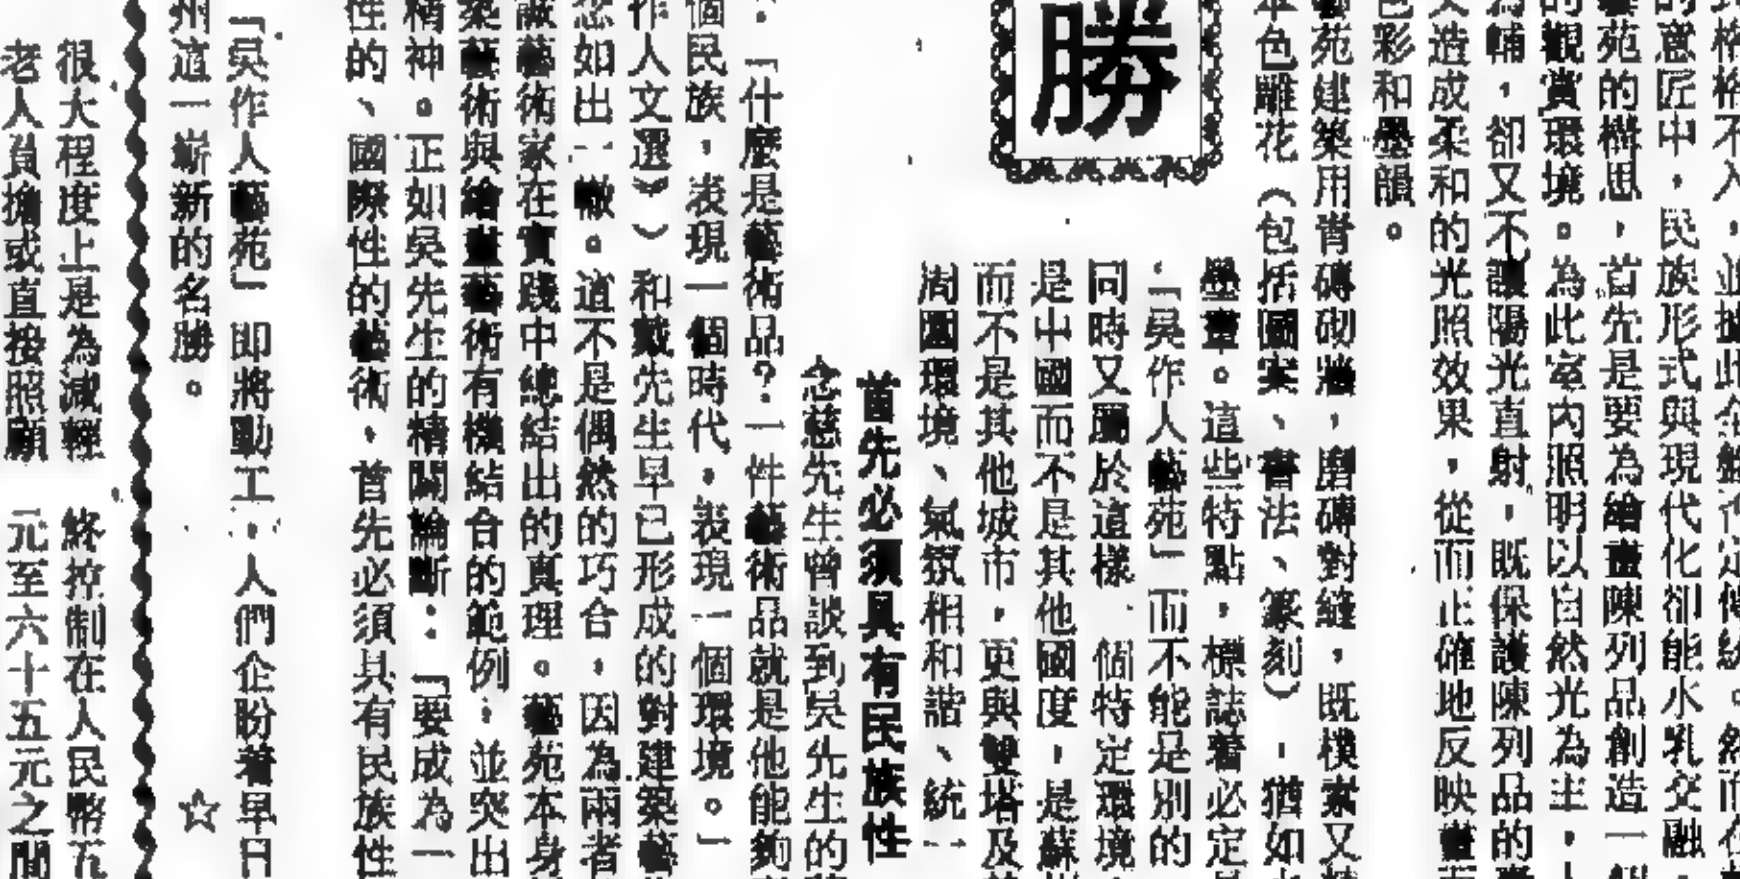 格格不入，並據此全盤否定傳統。然而在
的意匠中，民族形式與現代化卻能水乳交融，
藝苑的構思，首先是要為繪畫陳列品創造一個
的觀賞環境。為此室內照明以自然光為主，人
為輔，卻又不讓陽光直射，既保護陳列品的
又造成柔和的光照效果，從而正確地反映畫面
色彩和墨韻。
藝苑建築用青磚砌牆，磨磚對縫，既樸素又
本色雕花（包括圖案、書法、篆刻），猶如
壘畫。這些特點，標誌着必定是
「吳作人藝苑」而不能是別的
同時又屬於這樣一個特定環境，
是中國而不是其他國度，是蘇州
而不是其他城市，更與雙塔及
周圍環境、氣氛相和諧、統一
勝
首先必須具有民族性
念慈先生曾談到吳先生的藝
：「什麼是藝術品？一件藝術品就是他能夠
個民族，表現一個時代，表現一個環境。」
作人文選》）和戴先生早已形成的對建築藝
念如出一轍。這不是偶然的巧合，因為兩者
誠藝術家在實踐中總結出的真理。藝苑本身
築藝術與繪畫藝術有機結合的範例；並突出
精神。正如吳先生的精闢論斷：「要成為一
性的、國際性的藝術，首先必須具有民族性
「吳作人藝苑」即將動工，人們企盼着早日
州這一嶄新的名勝。 ☆
很大程度上是為減輕
老人負擔或直接照顧
終控制在人民幣五
元至六十五元之間